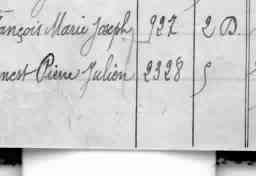 François Marie Joseph 927 2 D.
Ernest Pierre Julien 2328 5